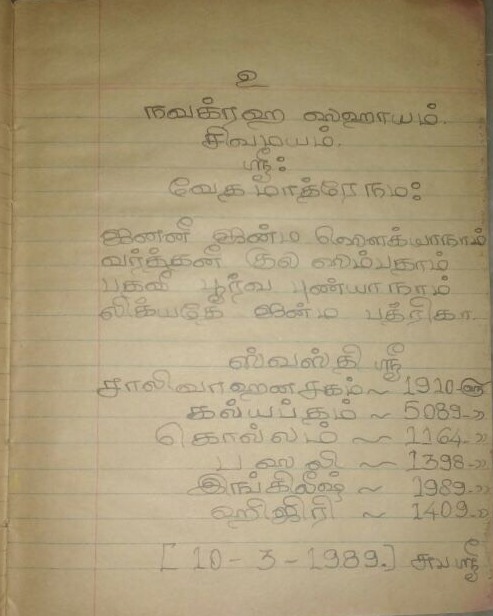 உ
நவக்ரஹ ஸஹாயம்.
சிவமயம்.
ஸ்ரீ:
வேத மாத்ரே நம:
ஜனனீ ஜன்ம ஸௌக்யாநாம்
வர்த்தனீ குல ஸம்பதாம்
பதவீ பூர்வ புண்யாநாம்
லிக்யதே ஜன்ம பத்ரிகா.
ஸ்வஸ்தி ஸ்ரீ
சாலிவாஹன சகம் ~ 1910-௵
கல்யப்தம் ~ 5089-»
கொல்லம் ~ 1164-»
பஸலி ~ 1398-»
இங்கிலீஷ் ~ 1989-»
ஹிஜிரி ~ 1409-»
[10-3-1989.] சுபஸ்ரீ